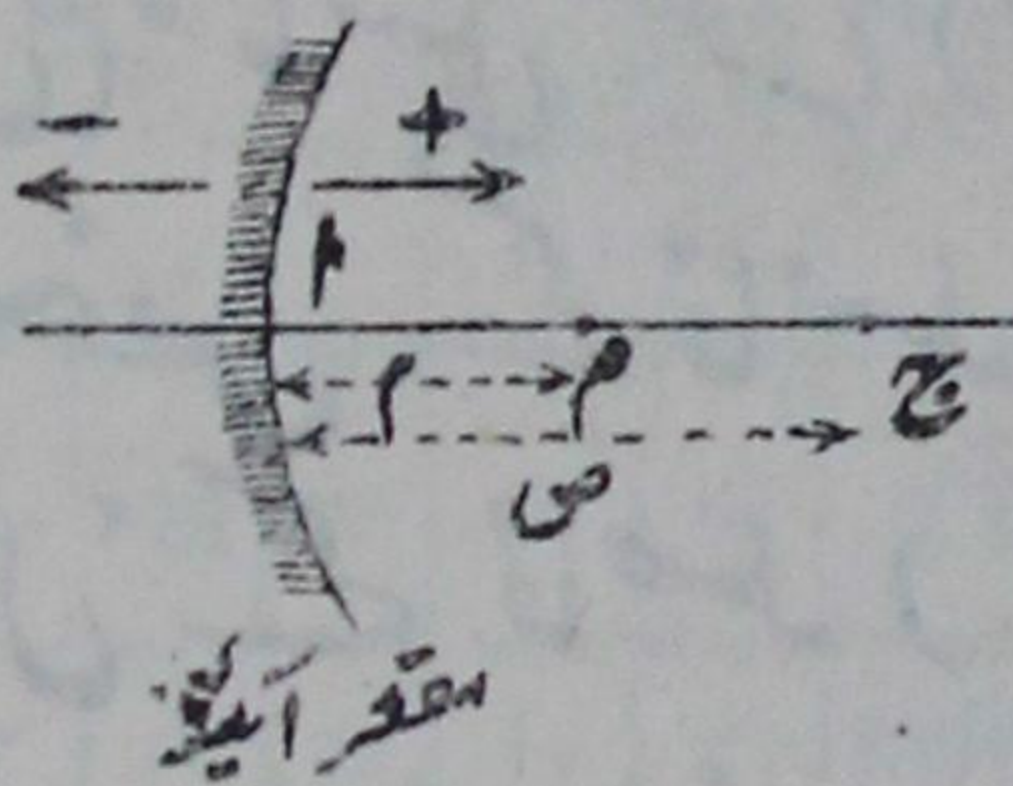 − +
م م ج
ص
مقعر آئینہ